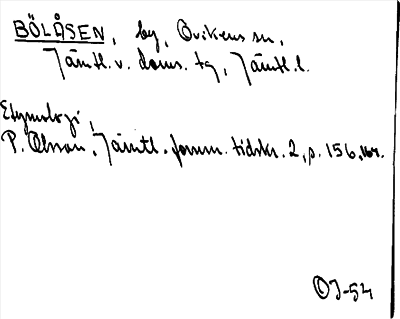 BÖLÅSEN, by, Ovikens sn,
Jämtl. v. doms. tg, Jämtl. l.
Etymologi,
P. Olsson, Jämtl. fornm. tidskr. 2, p. 156,
OJ-54